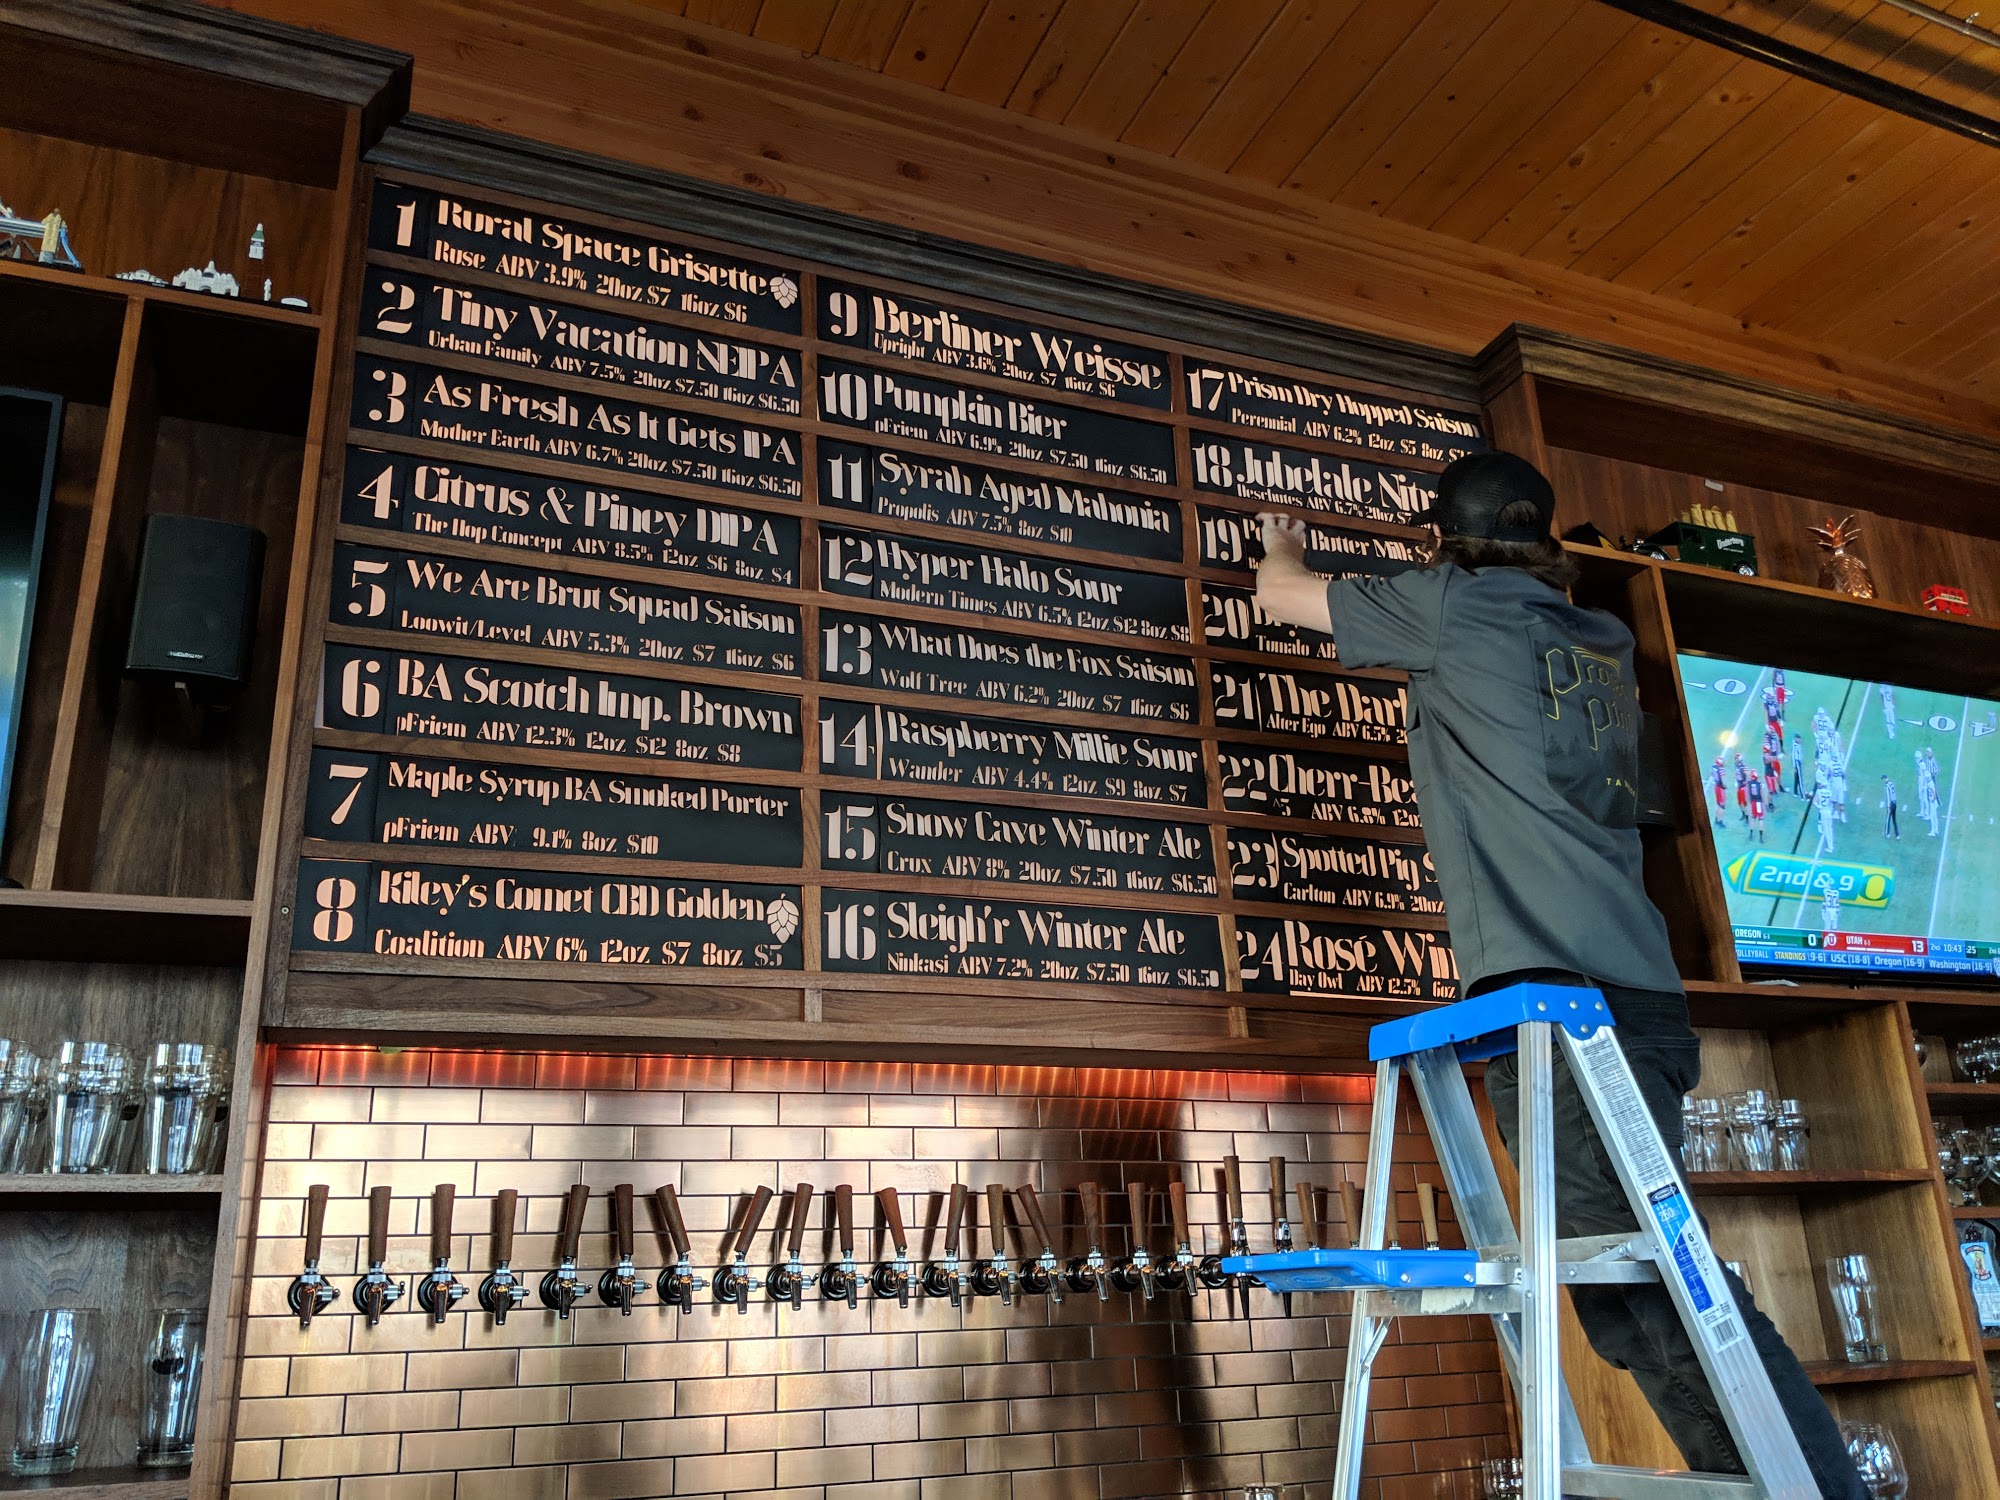 1 Rural Space Grisette
Ruse ABV 3.9% 20oz $7 16oz $6
2 Tiny Vacation NEIPA
Urban Family ABV 7.5% 20oz $7.50 16oz $6.50
3 As Fresh As It Gets IPA
Mother Earth ABV 6.7% 20oz $7.50 16oz $6.50
4 Citrus & Piney DIPA
The Hop Concept ABV 8.5% 12oz $6 8oz $4
5 We Are Brut Squad Saison
Loowit/Level ABV 5.3% 20oz $7 16oz $6
6 BA Scotch Imp. Brown
pFriem ABV 12.3% 12oz $12 8oz $8
7 Maple Syrup BA Smoked Porter
pFriem ABV 9.1% 8oz $10
8 Kiley's Comet CBD Golden
Coalition ABV 6% 12oz $7 8oz $5
9 Berliner Weisse
Upright ABV 3.6% 20oz $7 16oz $6
10 Pumpkin Bier
pFriem ABV 6.9% 20oz $7.50 16oz $6.50
11 Syrah Aged Mahonia
Propolis ABV 7.5% 8oz $10
12 Hyper Halo Sour
Modern Times ABV 6.5% 12oz $12 8oz $8
13 What Does the Fox Saison
Wolf Tree ABV 6.2% 20oz $7 16oz $6
14 Raspberry Millie Sour
Wander ABV 4.4% 12oz $9 8oz $7
15 Snow Cave Winter Ale
Crux ABV 8% 20oz $7.50 16oz $6.50
16 Sleigh'r Winter Ale
Ninkasi ABV 7.2% 20oz $7.50 16oz $6.50
17 Prism Dry Hopped Saison
Perennial ABV 6.2% 12oz $5 8oz
18 Jubelale Nitr
Deschutes ABV 6.7% 20oz
19 Butter Milk
ABV
20
Tomalo
21 The Dar
Alter Ego ABV 6.5%
22 Cherr-Be
^5 ABV 6.8% 12oz
23 Spotted Pig
Carlton ABV 6.9% 20oz
24 Rosé Win
Day Owl ABV 12.5% 6oz
Underberg
2nd & 9
OREGON 0 UTAH 13 2nd 10:43 :25
STANDINGS (9-6) USC (18-8) Oregon (16-9) Washington (16-9)